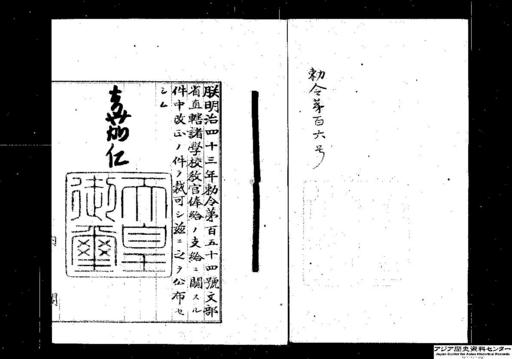 勅令第百六号
朕明治四十三年勅令第百五十四號文部
省直轄諸學校敎官俸給ノ支給ニ關スル
件中改正ノ件ヲ裁可シ茲ニ之ヲ公布セ
シム
嘉仁
天皇
御璽
内閣
アジア歴史資料センター
Japan Center for Asian Historical Records